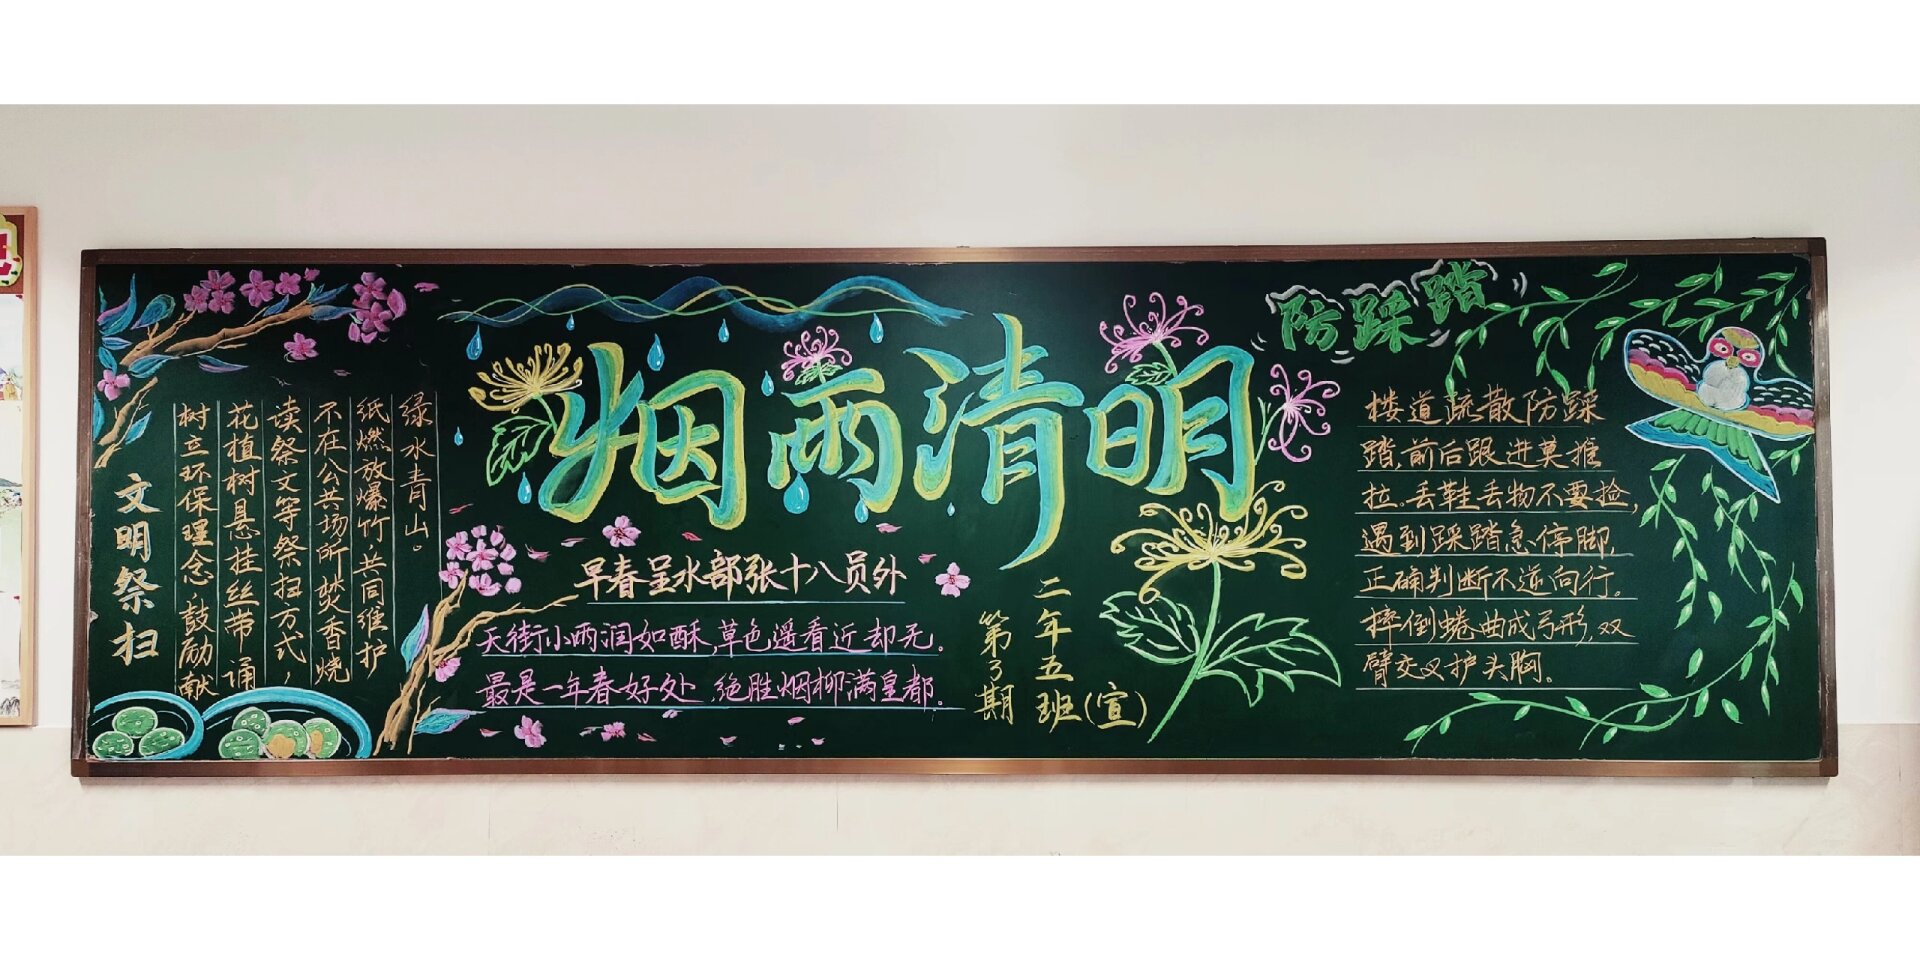 文明祭扫
树立环保理念,鼓励献
花植树悬挂丝带诵
读祭文等祭扫方式,
不在公共场所焚香烧
纸燃放爆竹,共同维护
绿水青山。
烟雨清明
早春呈水部张十八员外
天街小雨润如酥,草色遥看近却无。
最是一年春好处,绝胜烟柳满皇都。
第3期
二年五班(宣)
防踩踏
楼道疏散防踩
踏,前后跟进莫推
拉。丢鞋丢物不要捡,
遇到踩踏急停脚,
正确判断不逆向行。
摔倒蜷曲成弓形,双
臂交叉护头胸。